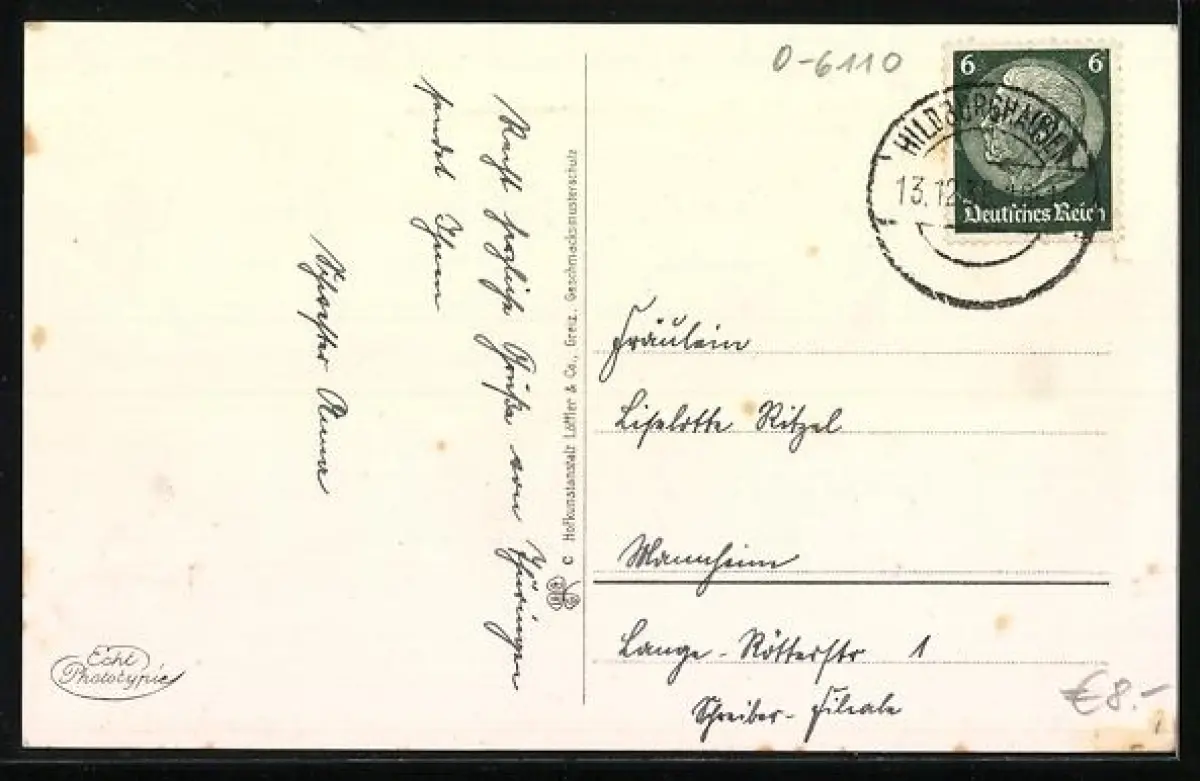 O-6110
6 6
HILDBURGHAUSEN
13.12.
Deutsches Reich
Recht herzliche Grüße von Thüringen
sendet Ihnen
Schwester Anna
© Hofkunstanstalt Löffler & Co., Greiz, Geschmacksmusterschutz
Fräulein
Liselotte Ritzel
Mannheim
Lange-Rötterstr 1
Schreiber-Filiale
Echt
Phototypie
€ 8.-